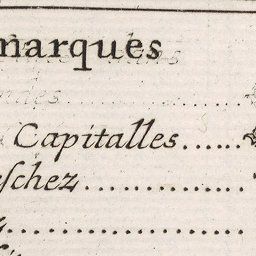 marques
Capitalles......
eſchez..............